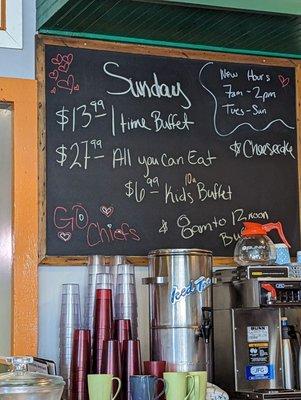 Sunday
New Hours
7am - 2pm
Tues - Sun
$13.99 1 time Buffet
$27.99 All you can Eat
$Cheesecake
$6.99 Kids Buffet
10u
GO
Chiefs
$
8am to 12 noon
Iced Tea
BUNN
BUNN
JFG